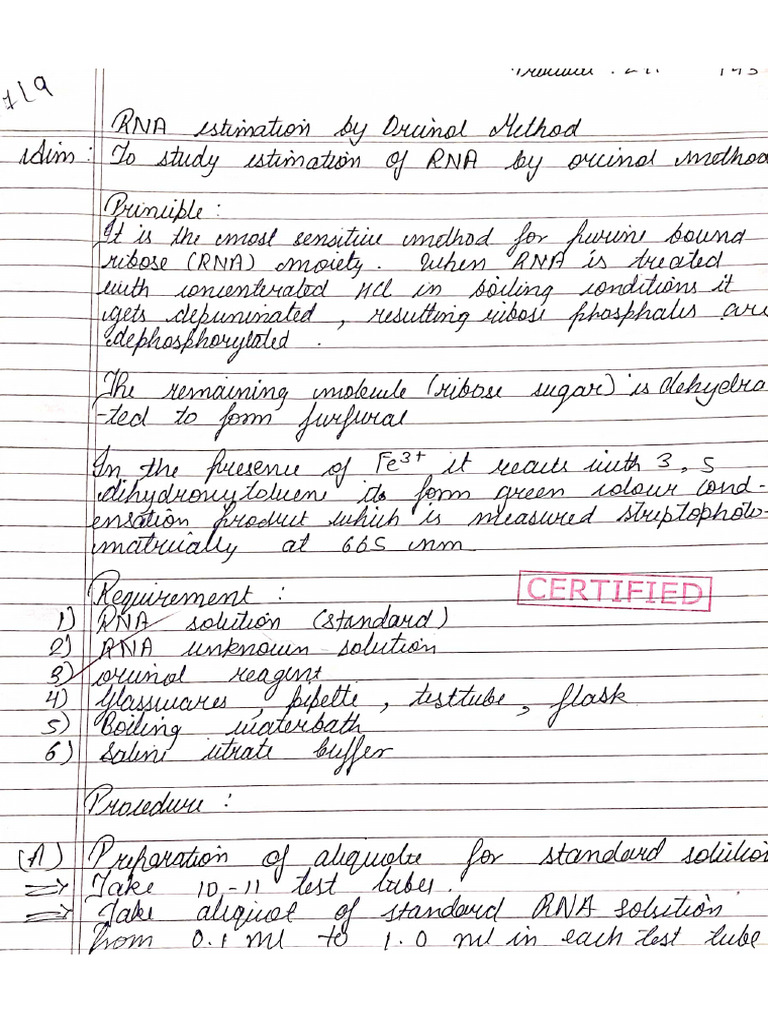 RNA estimation by Orcinol Method
Aim : To study estimation of RNA by orcinol method
Principle :
It is the most sensitive method for purine bound
ribose (RNA) moiety. When RNA is treated
with concenterated HCl in boiling conditions it
gets depurinated , resulting ribose phosphates are
dephosphorylated .
The remaining molecule (ribose sugar) is dehydra
-ted to form furfural
In the presence of Fe3+ it reacts with 3, 5
dihydroxytoluene to form green colour cond-
ensation product which is measured streptophoto-
matrically at 665 nm
Requirement :
CERTIFIED
1) RNA solution (standard)
2) RNA unknown solution
3) orcinol reagent
4) Glasswares , pipette , testtube , flask
5) Boiling waterbath
6) Saline citrate buffer
Procedure :
(A) Preparation of aliquote for standard solution
⇒ Take 10-11 test tubes.
⇒ Take aliquot of standard RNA solution
from 0.1 ml to 1.0 ml in each test tube